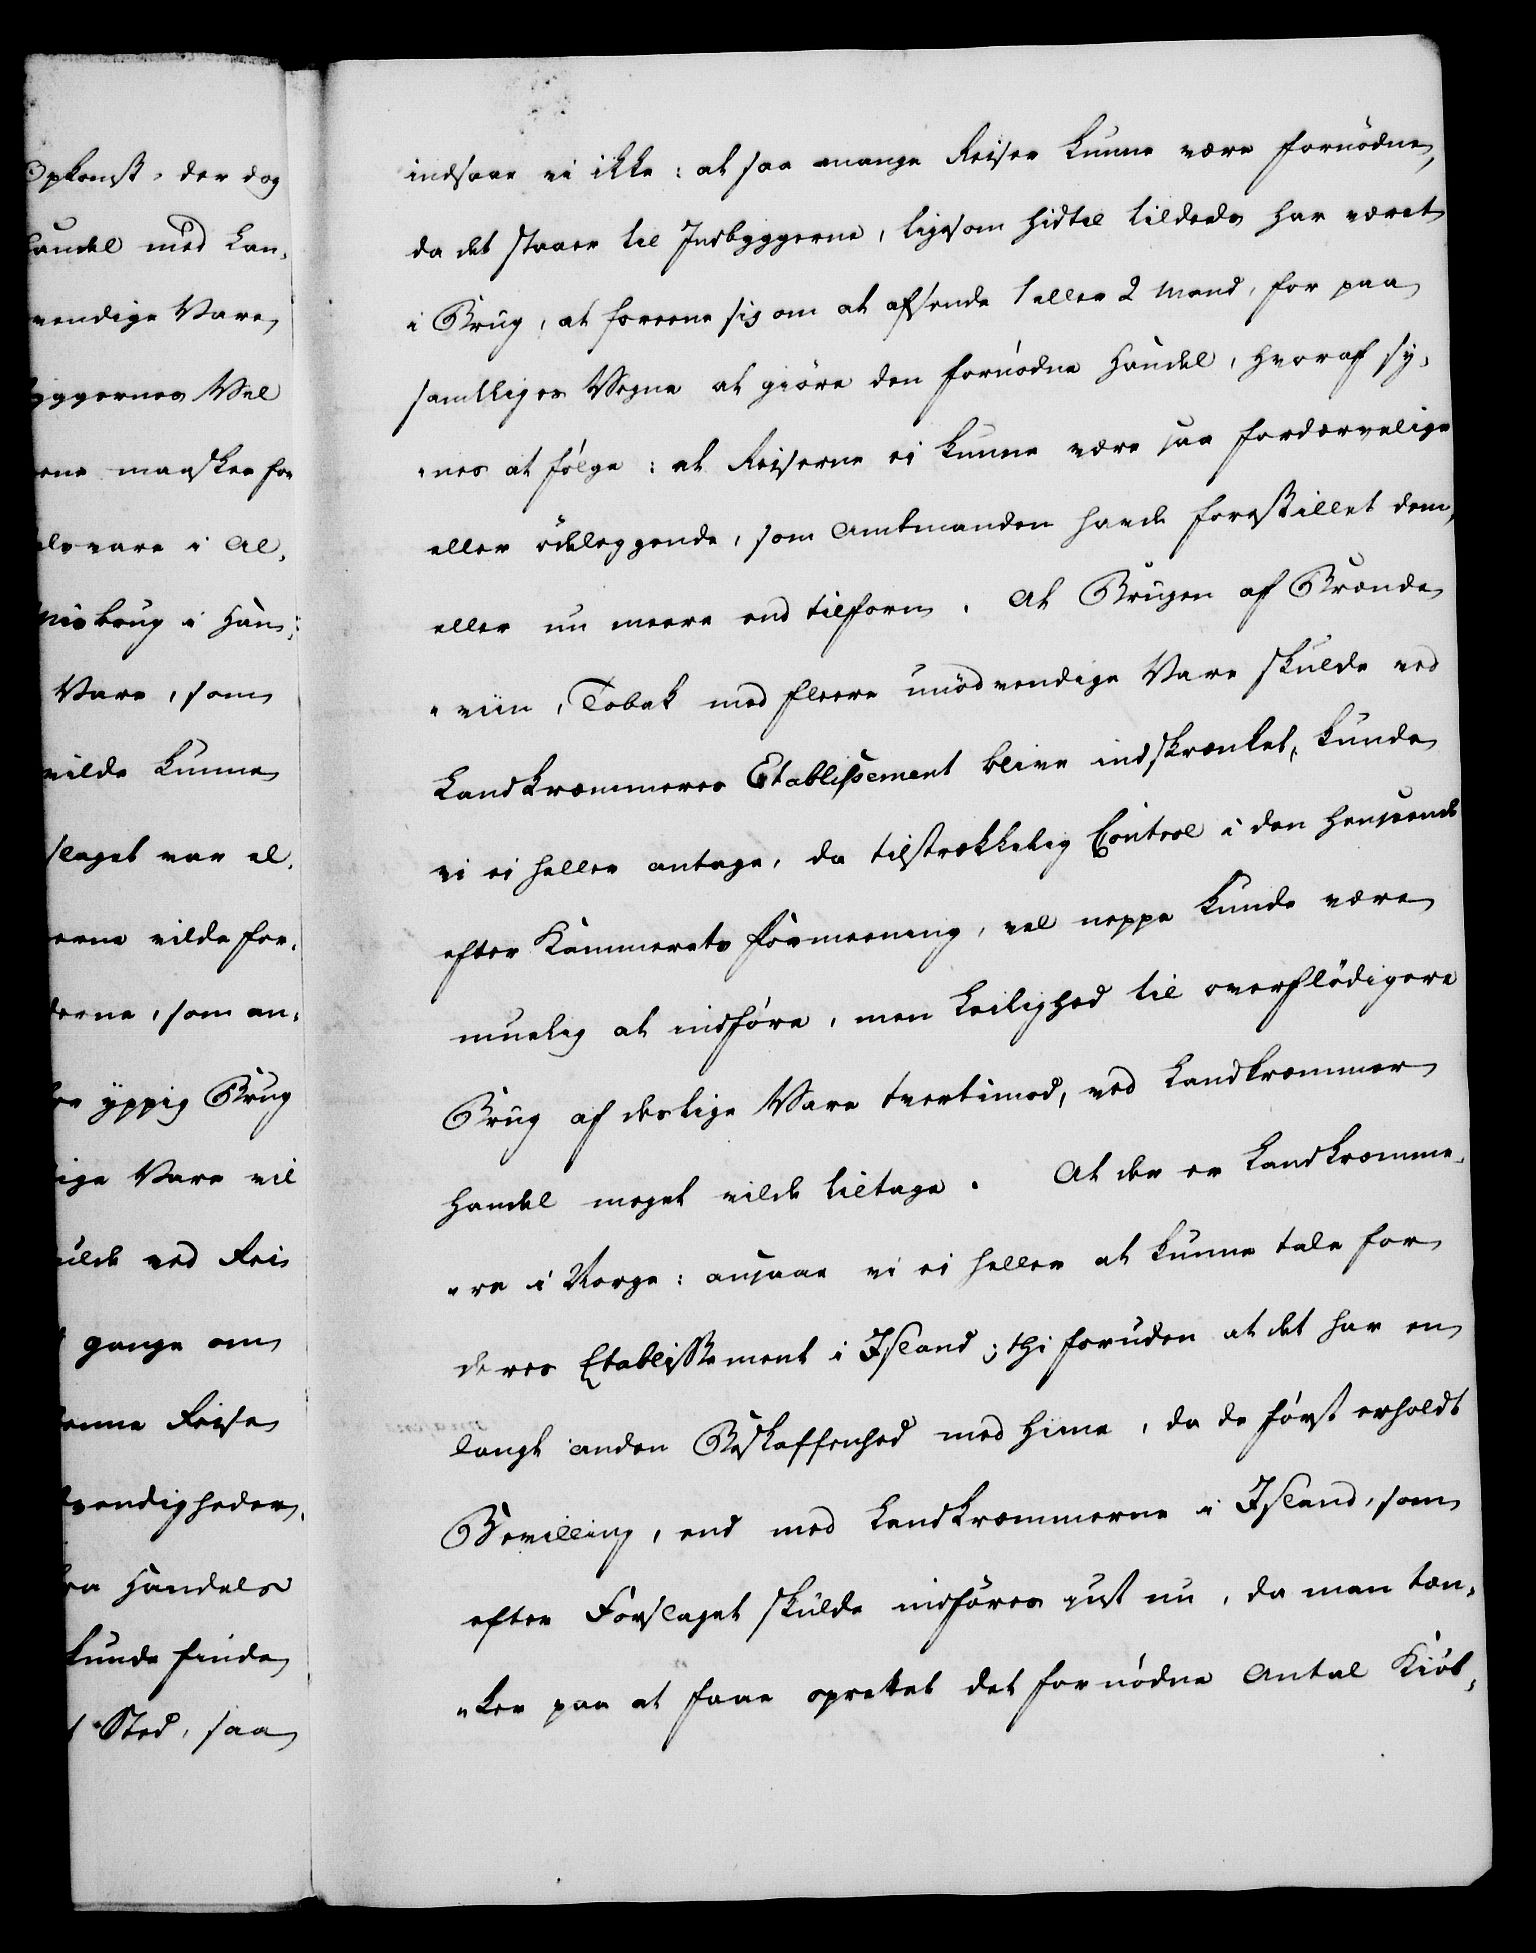 Opkomst, der dog
Handel med Lan„
vendige Vare
byggernes Vel
erne maaskee for
elsvare i Al„
Misbrug i Han„
Vare, som
vilde kunne
slaget var al„
erne vilde for„
derne, som an„
yppig Brug
ige Vare vil
vilde ved Rei
gange om
denne Reise
dvendigheder.
fra Handels
kunde finde
Sted, saa
indsaae vi ikke: at saa mange Reiser kunne være fornødne,
da det staaer til Indbyggerne, ligesom hidtil tildeels har været
i Brug, at foreene sig om at afsende 1 eller 2 Mand, for paa
samtliges Vegne at giöre den fornødne Handel, hvoraf sy„
„nes at følge: at Reiserne ei kunne være saa fordærvelige
eller ödeleggende, som Amtmanden havde forestillet dem,
eller nu meere end tilforn. At Brugen af Brænde
„viin, Tobak med fleere unödvendige Vare skulde ved
Landkræmmeres Etablissement blive indskrænket, kunde
vi ei heller antage, da tilstrækkelig Control i den Henseende
efter Kammerets Formeening, vel neppe kunde være
muelig at indføre, men Leilighed til overflödigere
Brug af deslige Vare tvertimod, ved Landkræmmer
Handel meget vilde tiltage. At der er Landkræmme„
„re i Norge: ansaae vi ei heller at kunne tale for
deres Etablissement i Island; thi foruden at det har en
langt anden Beskaffenhed med hine, da de først erholdt
Bevilling, end med Landkræmmerne i Island, som
efter Forslaget skulde indføres just nu, da man tæn„
„ker paa at faae oprettet det fornødne Antal Kiöb„